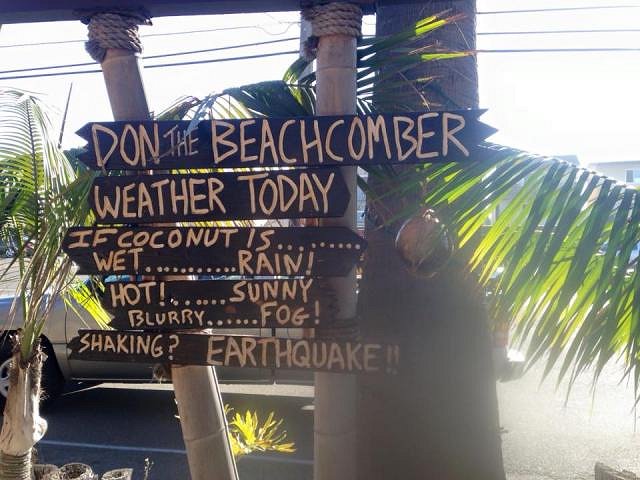 DON THE BEACHCOMBER
WEATHER TODAY
IF COCONUT IS..........
WET..........RAIN!
HOT!......SUNNY
BLURRY......FOG!
SHAKING? EARTHQUAKE!!